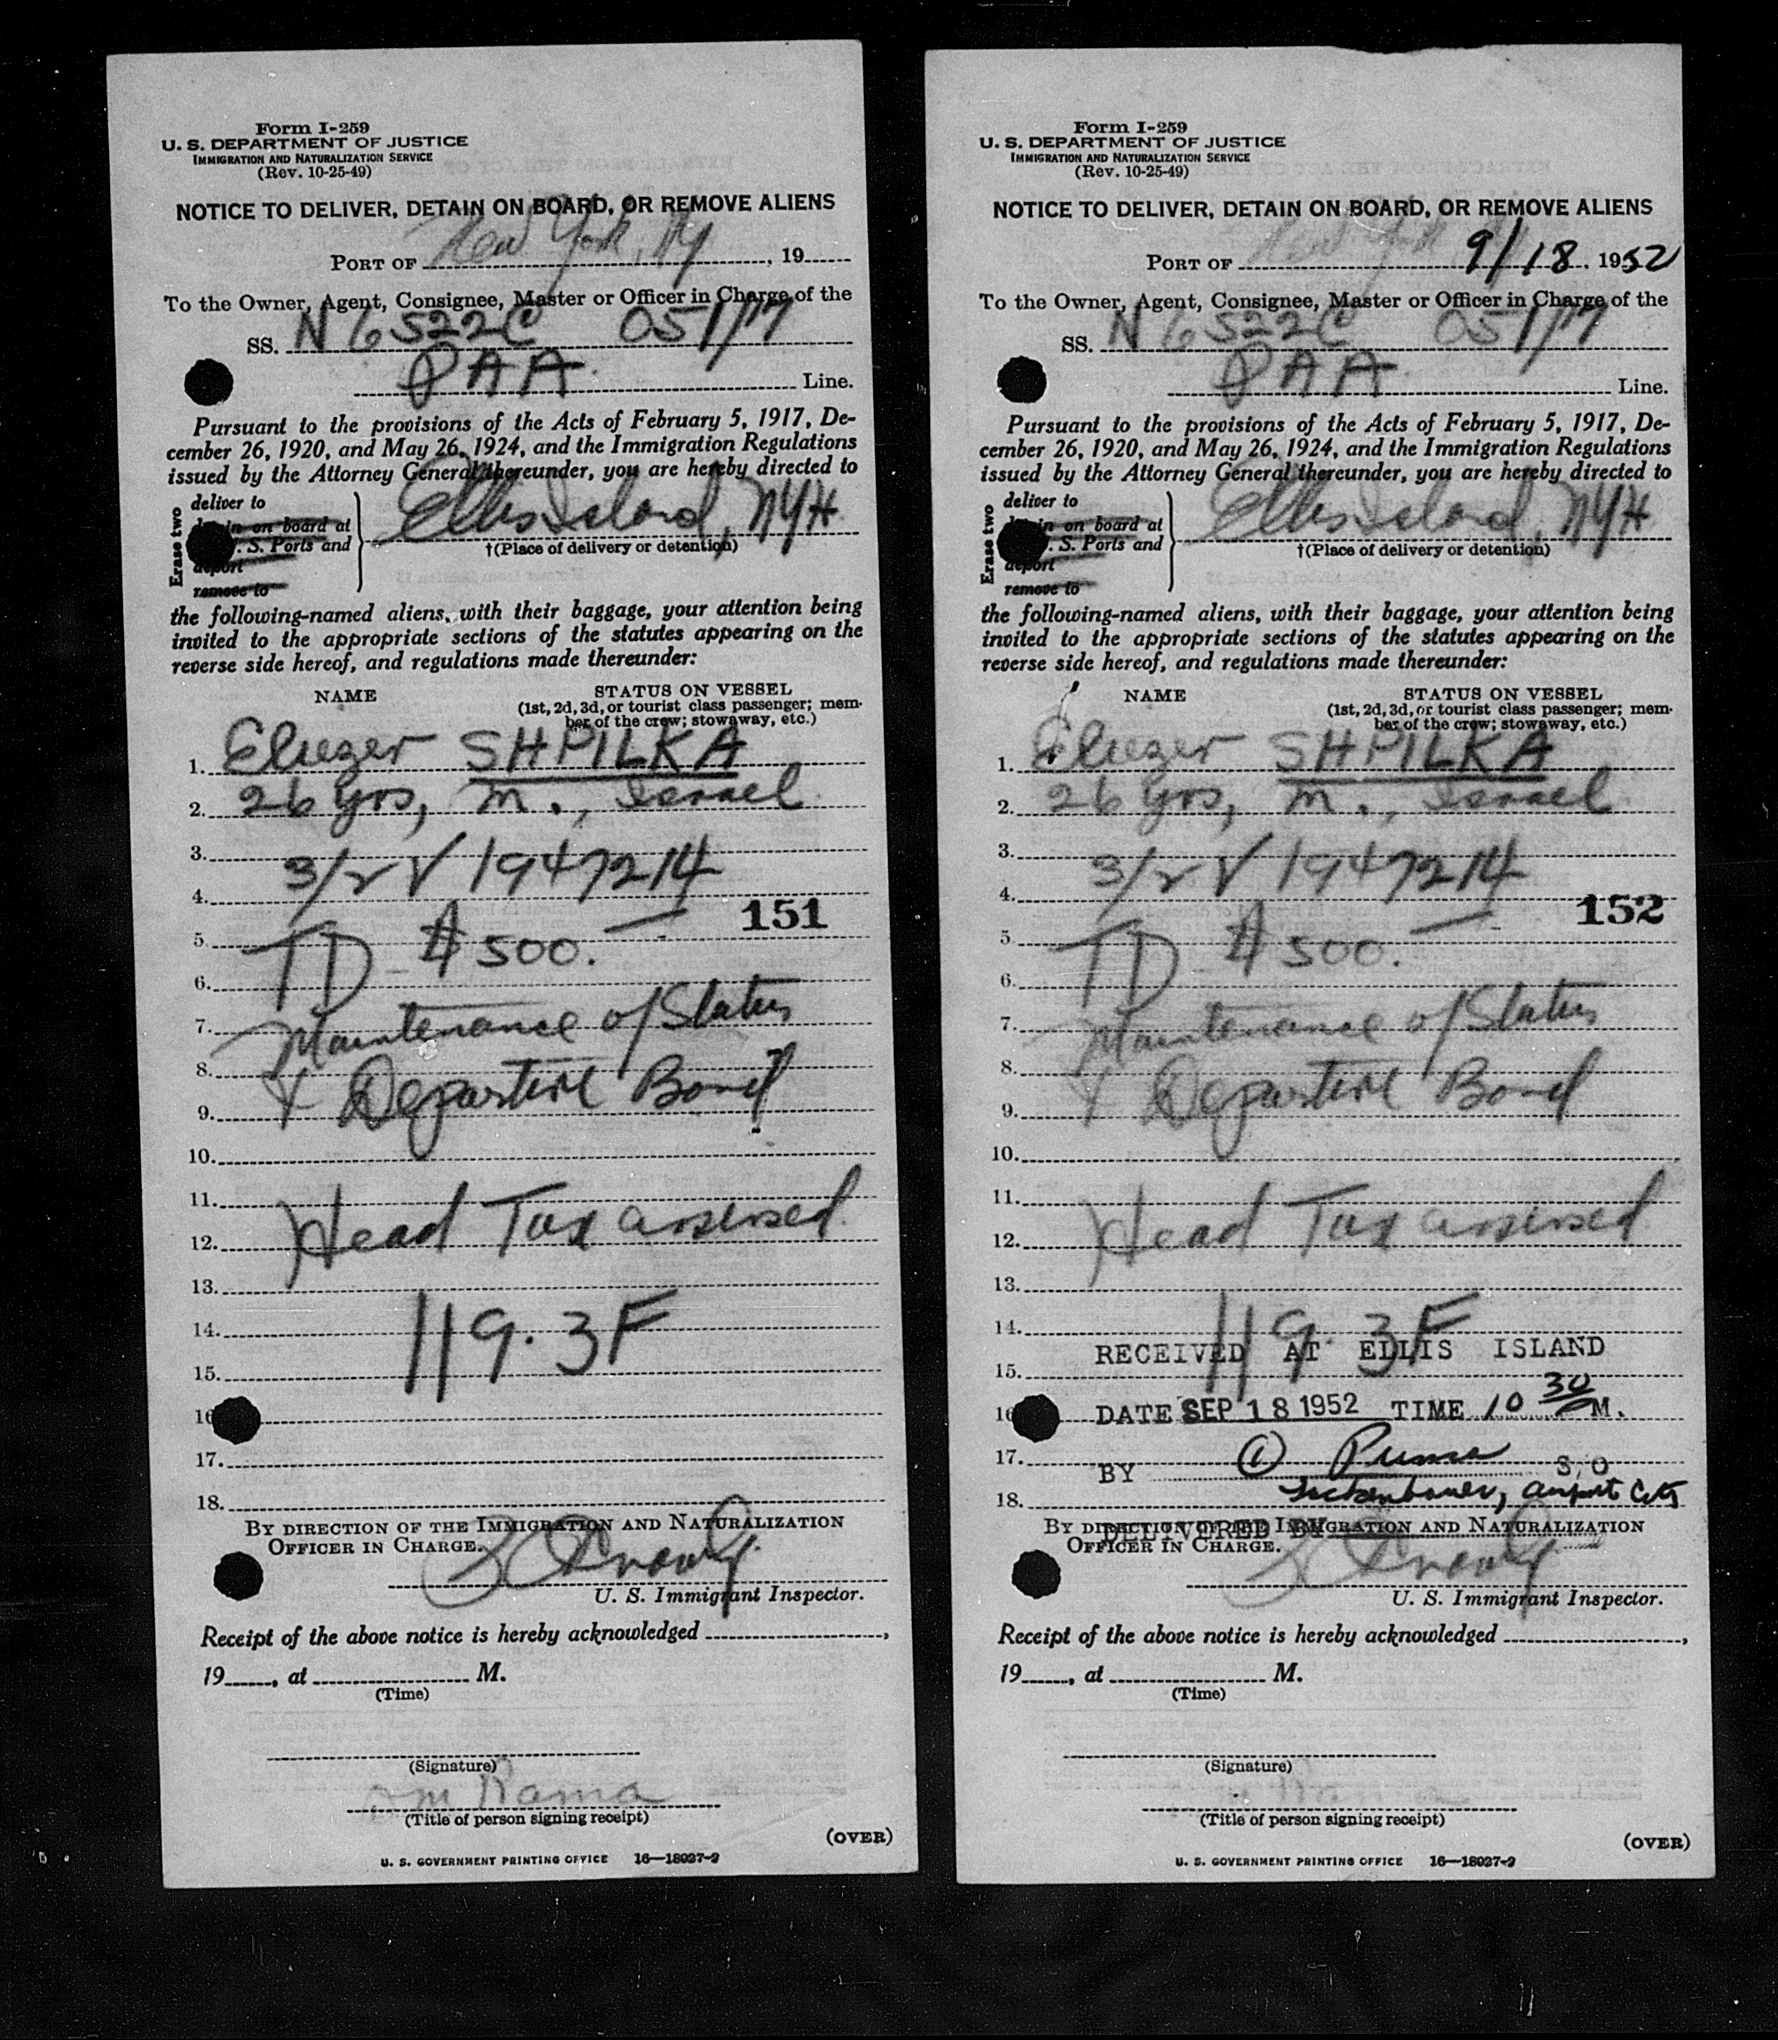 Form I-259
U. S. DEPARTMENT OF JUSTICE
IMMIGRATION AND NATURALIZATION SERVICE
(Rev. 10-25-49)
NOTICE TO DELIVER, DETAIN ON BOARD, OR REMOVE ALIENS
PORT OF New York, NY, 19
To the Owner, Agent, Consignee, Master or Officer in Charge of the
SS. N 6522C 051/17
PAA Line.
Pursuant to the provisions of the Acts of February 5, 1917, De-
cember 26, 1920, and May 26, 1924, and the Immigration Regulations
issued by the Attorney General thereunder, you are hereby directed to
Erase two
deliver to
in on board at
. S. Ports and
deport
remove to
Ellis Island, NYH
†(Place of delivery or detention)
the following-named aliens, with their baggage, your attention being
invited to the appropriate sections of the statutes appearing on the
reverse side hereof, and regulations made thereunder:
NAME
STATUS ON VESSEL
(1st, 2d, 3d, or tourist class passenger; mem-
ber of the crew; stowaway, etc.)
1. Eliezer SHPILKA
2. 26 yrs, m., Israel
3.
4. 3/2 V 1947214
151
5.
6. TD $500.—
7. Maintenance of Status
8.
9. & Departure Bond
10.
11.
12. Head Tax assessed
13.
14. 119.3F
15.
16
17.
18.
BY DIRECTION OF THE IMMIGRATION AND NATURALIZATION
OFFICER IN CHARGE.
U. S. Immigrant Inspector.
Receipt of the above notice is hereby acknowledged ,
19 , at M.
(Time)
(Signature)
Rama
(Title of person signing receipt)
(OVER)
U. S. GOVERNMENT PRINTING OFFICE 16—18027-2
Form I-259
U. S. DEPARTMENT OF JUSTICE
IMMIGRATION AND NATURALIZATION SERVICE
(Rev. 10-25-49)
NOTICE TO DELIVER, DETAIN ON BOARD, OR REMOVE ALIENS
PORT OF New York 9/18, 1952
To the Owner, Agent, Consignee, Master or Officer in Charge of the
SS. N 6522C 051/17
PAA Line.
Pursuant to the provisions of the Acts of February 5, 1917, De-
cember 26, 1920, and May 26, 1924, and the Immigration Regulations
issued by the Attorney General thereunder, you are hereby directed to
Erase two
deliver to
in on board at
. S. Ports and
deport
remove to
Ellis Island, NYH
†(Place of delivery or detention)
the following-named aliens, with their baggage, your attention being
invited to the appropriate sections of the statutes appearing on the
reverse side hereof, and regulations made thereunder:
NAME
STATUS ON VESSEL
(1st, 2d, 3d, or tourist class passenger; mem-
ber of the crew; stowaway, etc.)
1. Eliezer SHPILKA
2. 26 yrs, m., Israel
3.
4. 3/2 V 1947214
152
5.
6. TD $500.—
7. Maintenance of Status
8.
9. & Departure Bond
10.
11.
12. Head Tax assessed
13.
14. 119.3F
RECEIVED AT ELLIS ISLAND
15.
16 DATE SEP 18 1952 TIME 10 30 M.
17.
BY S. O
18.
DELIVERED BY
BY DIRECTION OF THE IMMIGRATION AND NATURALIZATION
OFFICER IN CHARGE.
U. S. Immigrant Inspector.
Receipt of the above notice is hereby acknowledged ,
19 , at M.
(Time)
(Signature)
(Title of person signing receipt)
(OVER)
U. S. GOVERNMENT PRINTING OFFICE 16—18027-2